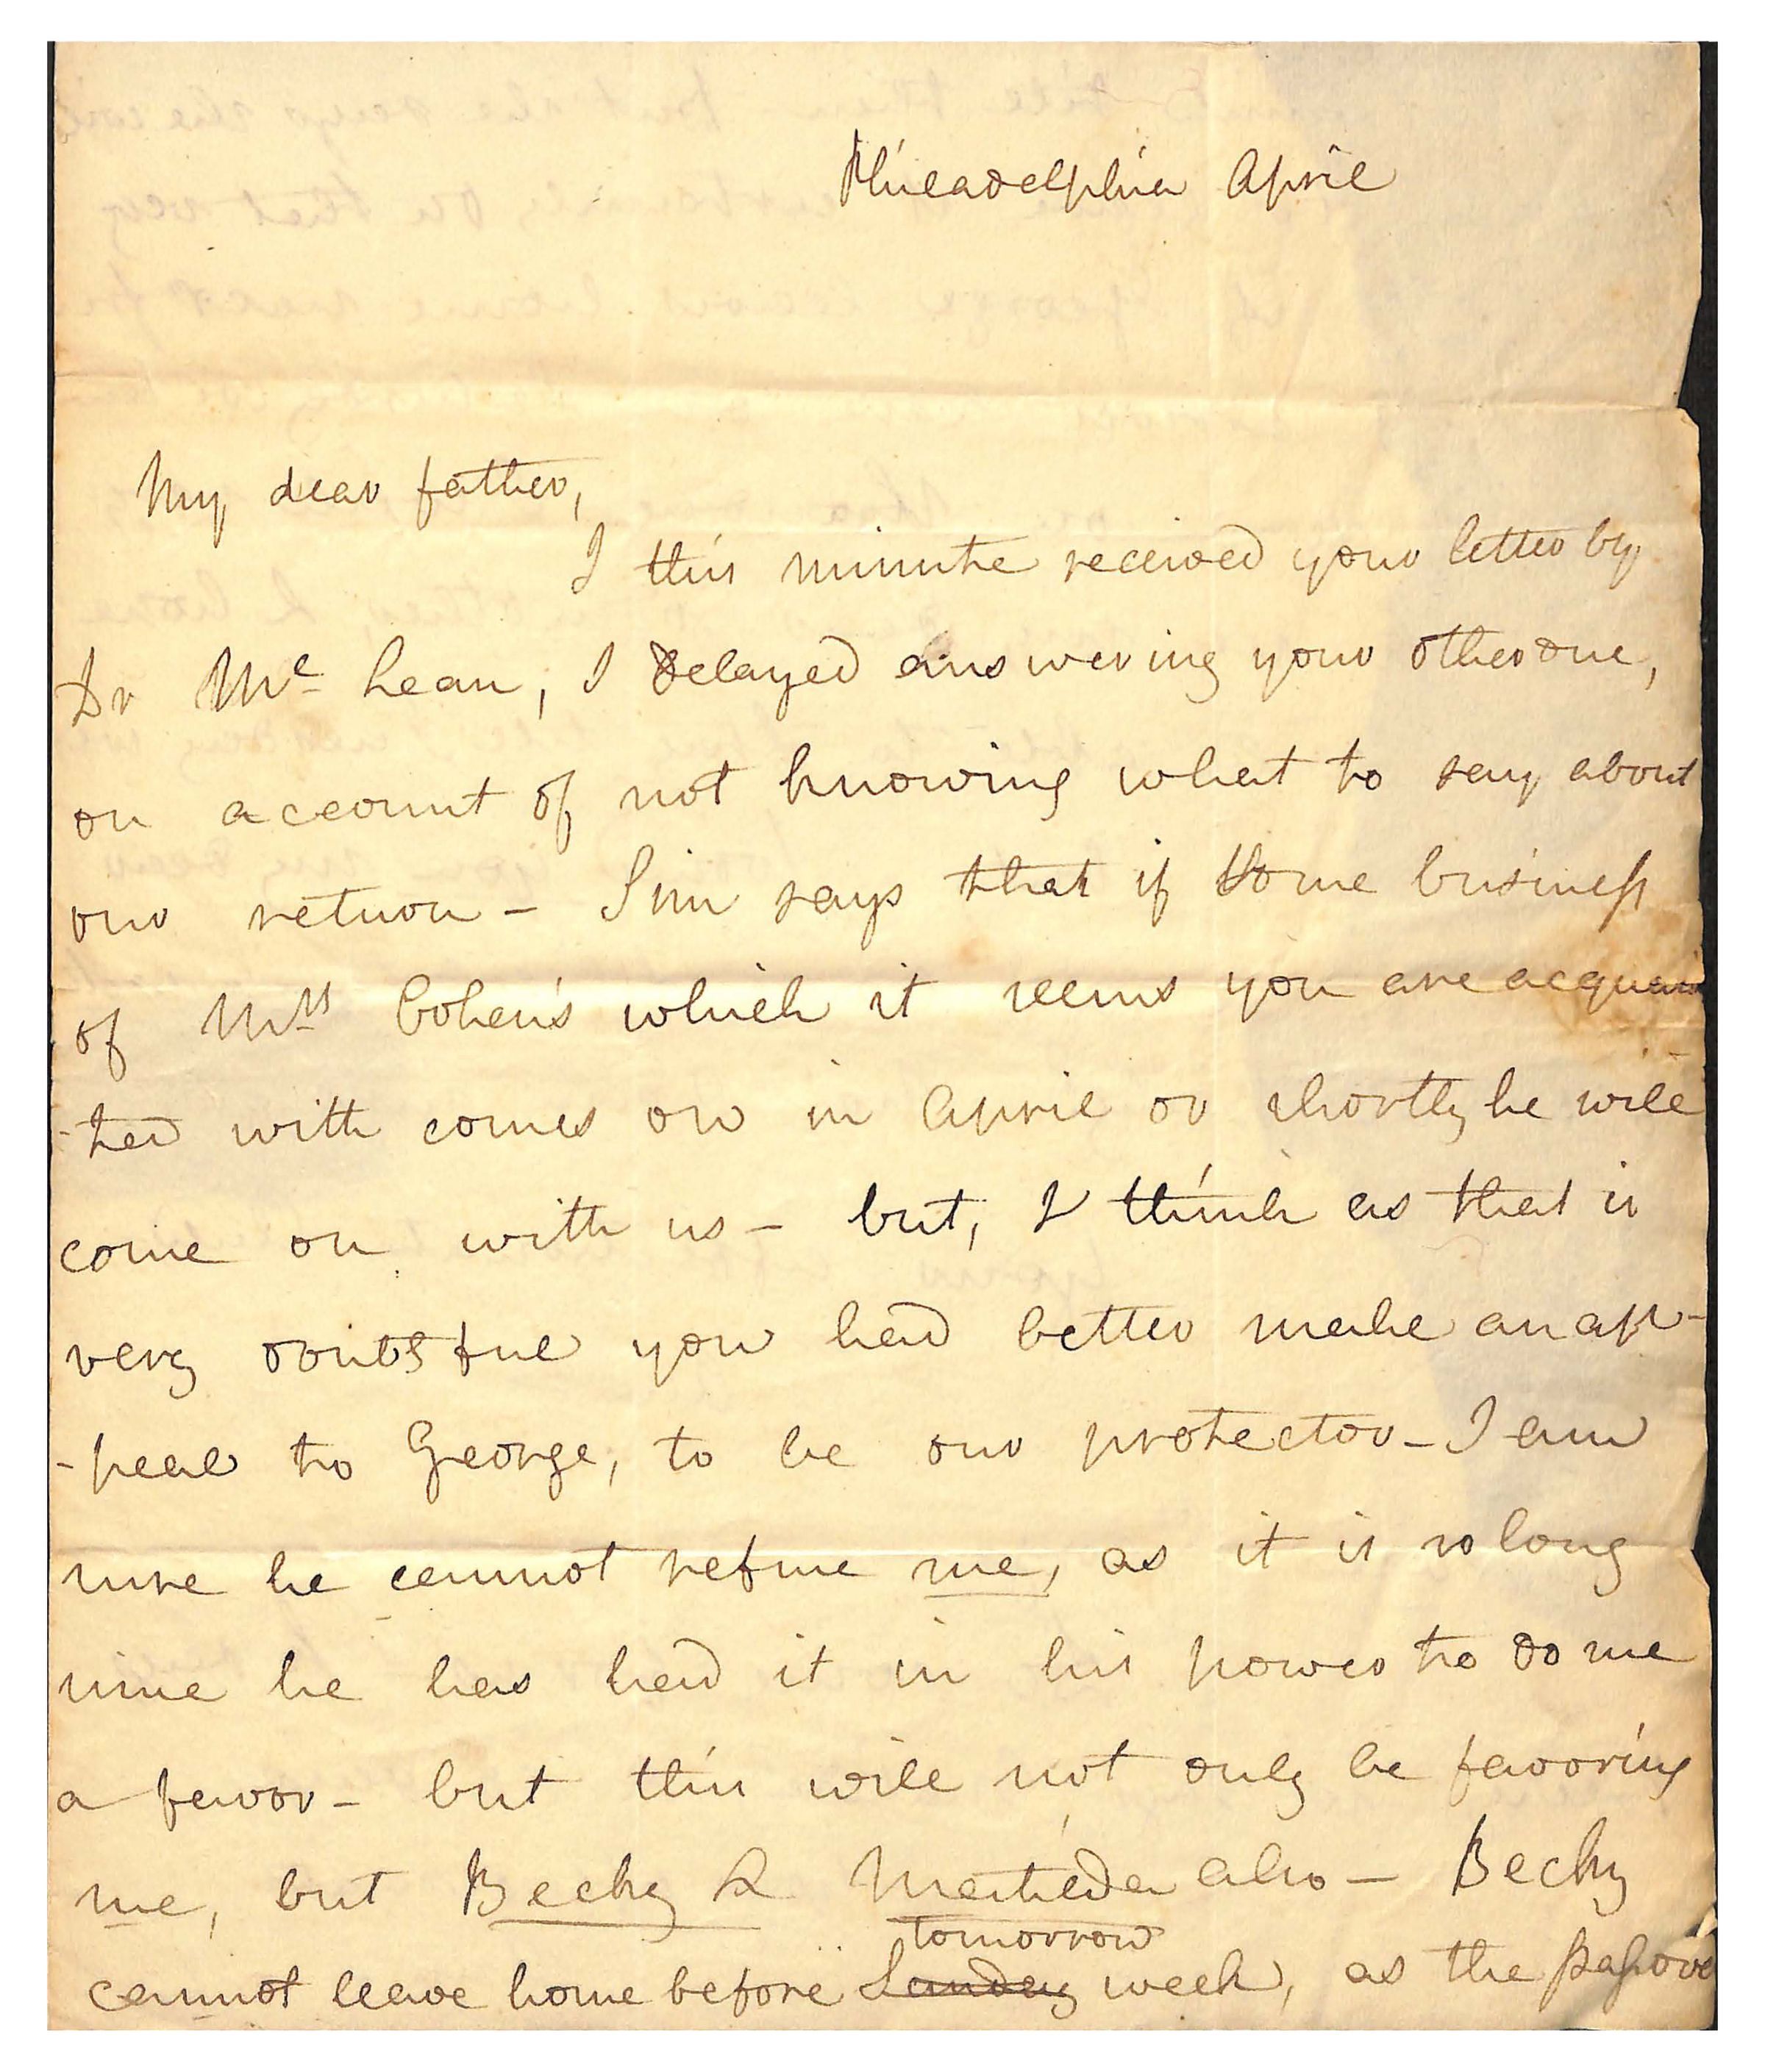 Philadelphia April
My dear father,
I this minute received your letter by
Dr Mc Lean, I delayed answering your other one,
on account of not knowing what to say about
our return - Sim says that if some business
of Mrs Cohen's which it seems you are acquain
-ted with comes on in April or shortly he will
come on with us - but, I think as that is
very doubtful you had better make an ap-
-peal to George, to be our protector - I am
sure he cannot refuse me, as it is so long
since he has had it in his power to do me
a favor - but this will not only be favoring
me, but Becky & Matilda also - Becky
tomorrow
cannot leave home before Sunday week, as the passove